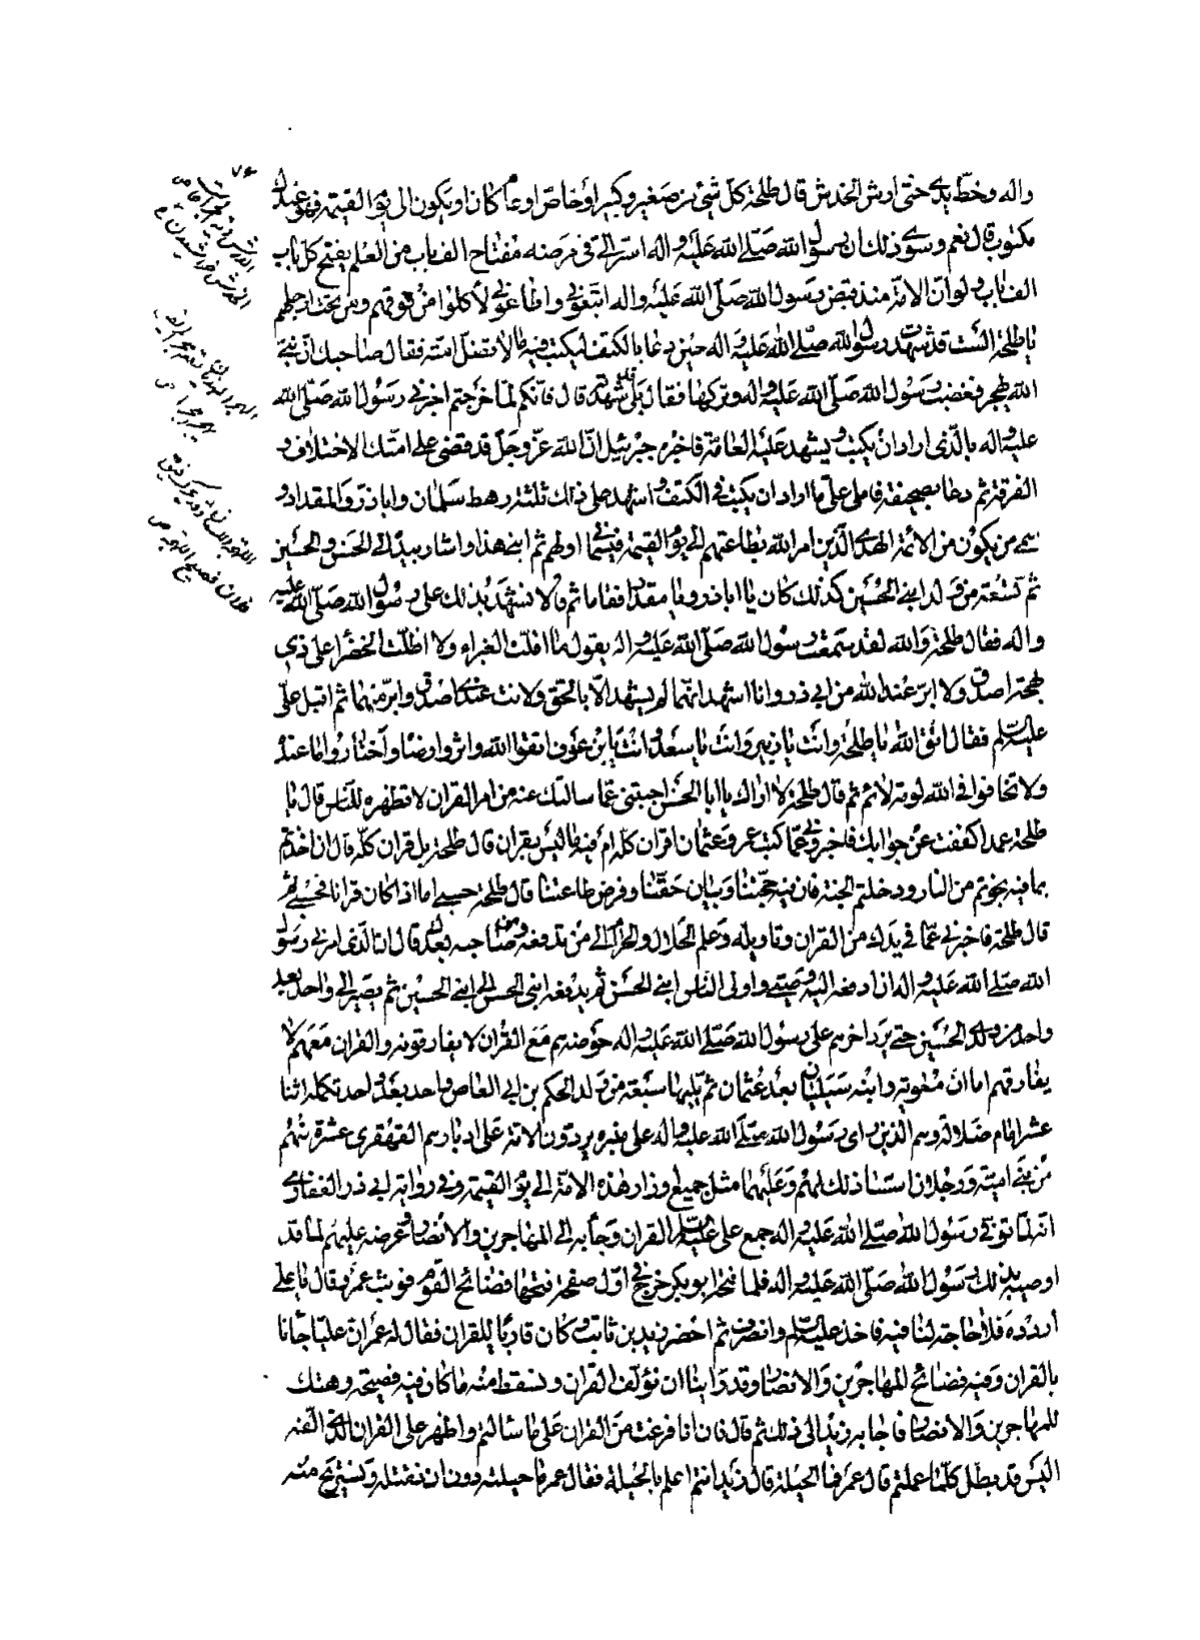 واله وخط يدى حتى ارش الخدش قال طلحة كل شئ من صغير وكبير او خاص او عام كان او يكون الى يوم القيمة فهو عندك
مكتوب قال نعم وسوى ذلك ان رسول الله صلى الله عليه واله اسر الى فى مرضه مفتاح الف باب من العلم يفتح كل باب
الف باب ولو ان الامة منذ قبض رسول الله صلى الله عليه واله اتبعونى واطاعونى لاكلوا من فوقهم ومن تحت ارجلهم
يا طلحة الست قد شهدت رسول الله صلى الله عليه واله حين دعا بالكتف ليكتب فيه ما لا تضل امته فقال صاحبك ان نبى
الله يهجر فغضب رسول الله صلى الله عليه واله وتركها فقال بلى قد شهدته قال فانكم لما خرجتم اخبرنى رسول الله صلى الله
عليه واله بالذى اراد ان يكتب ويشهد عليه العامة فاخبره جبرئيل ان الله عز وجل قد قضى على امتك الاختلاف و
الفرقة ثم دعا بصحيفة فاملى على ما اراد ان يكتب فى الكتف واشهد على ذلك ثلثة رهط سلمان وابا ذر والمقداد و
سمى من يكون من الائمة الهدى الذين امر الله بطاعتهم الى يوم القيمة فسمانى اولهم ثم ابنى هذا واشار بيده الى الحسن والحسين
ثم تسعة من ولد ابنى الحسين كذلك كان يا ابا ذر ويا مقداد فقاما ثم قالا نشهد بذلك على رسول الله صلى الله عليه
واله فقال طلحة والله لقد سمعت رسول الله صلى الله عليه واله يقول ما اقلت الغبراء ولا اظلت الخضراء على ذى
لهجة اصدق ولا ابر عند الله من ابى ذر وانا اشهد انهما لم يشهدا الا بالحق ولانت عندى اصدق وابر منهما ثم اقبل على
عليه السلم فقال اتق الله يا طلحة وانت يا زبير وانت يا سعد وانت يا بن عوف اتقوا الله واثروا رضاه واختاروا ما عنده
ولا تخافوا فى الله لومة لائم ثم قال طلحة لا اراك يا ابا الحسن اجبتنى عما سالتك عنه من امر القران لا تظهره للناس قال يا
طلحة عمدا كففت عن جوابك فاخبرونى عما كتب عمر وعثمان اقران كله ام فيه ما ليس بقران قال طلحة بل قران كله قال ان اخذتم
بما فيه نجوتم من النار ودخلتم الجنة فان فيه حجتنا وبيان حقنا وفرض طاعتنا قال طلحة حسبى اما اذا كان قرانا فحسبى ثم
قال طلحة فاخبرنى عما فى يدك من القران وتاويله وعلم الحلال والحرام الى من تدفعه ومن صاحبه بعدك قال الى الذى امرنى رسول
الله صلى الله عليه واله ان ادفعه اليه وصيى واولى الناس ابنى الحسن ثم يدفعه ابنى الحسن الى ابنى الحسين ثم يصير الى واحد بعد
واحد من ولد الحسين حتى يرد اخرهم على رسول الله صلى الله عليه واله حوضه هم مع القران لا يفارقونه والقران معهم لا
يفارقهم اما ان معوية وابنه سيليان بعد عثمان ثم يليها سبعة من ولد الحكم بن ابى العاص واحد بعد واحد تكملة اثنا
عشر امام ضلالة وهم الذين راى رسول الله صلى الله عليه واله على منبره يردون الامة على ادبارهم القهقرى عشرة منهم
من بنى امية ورجلان اسسا ذلك لهم وعليهما مثل جميع اوزار هذه الامة الى يوم القيمة وفى رواية ابى ذر الغفارى
انه لما توفى رسول الله صلى الله عليه واله جمع على عليه السلم القران وجاء به الى المهاجرين والانصار وعرضه عليهم لما قد
اوصيه بذلك رسول الله صلى الله عليه واله فلما فتحه ابو بكر خرج فى اول صفحة فتحها فضائح القوم فوثب عمر وقال يا على
اردده فلا حاجة لنا فيه فاخذه عليه السلم وانصرف ثم احضر زيد بن ثابت وكان قاريا للقران فقال له عمر ان عليا جائنا
بالقران وفيه فضائح المهاجرين والانصار وقد راينا ان نؤلف القران ونسقط منه ما كان فيه فضيحة وهتك
للمهاجرين والانصار فاجابه زيد الى ذلك ثم قال فان انا فرغت من القران على ما سالتم واظهر على القران الذى الفه
اليس قد بطل كلما عملتم قال عمر فما الحيلة قال زيد انتم اعلم بالحيلة فقال عمر ما حيلته دون ان نقتله ونستريح منه